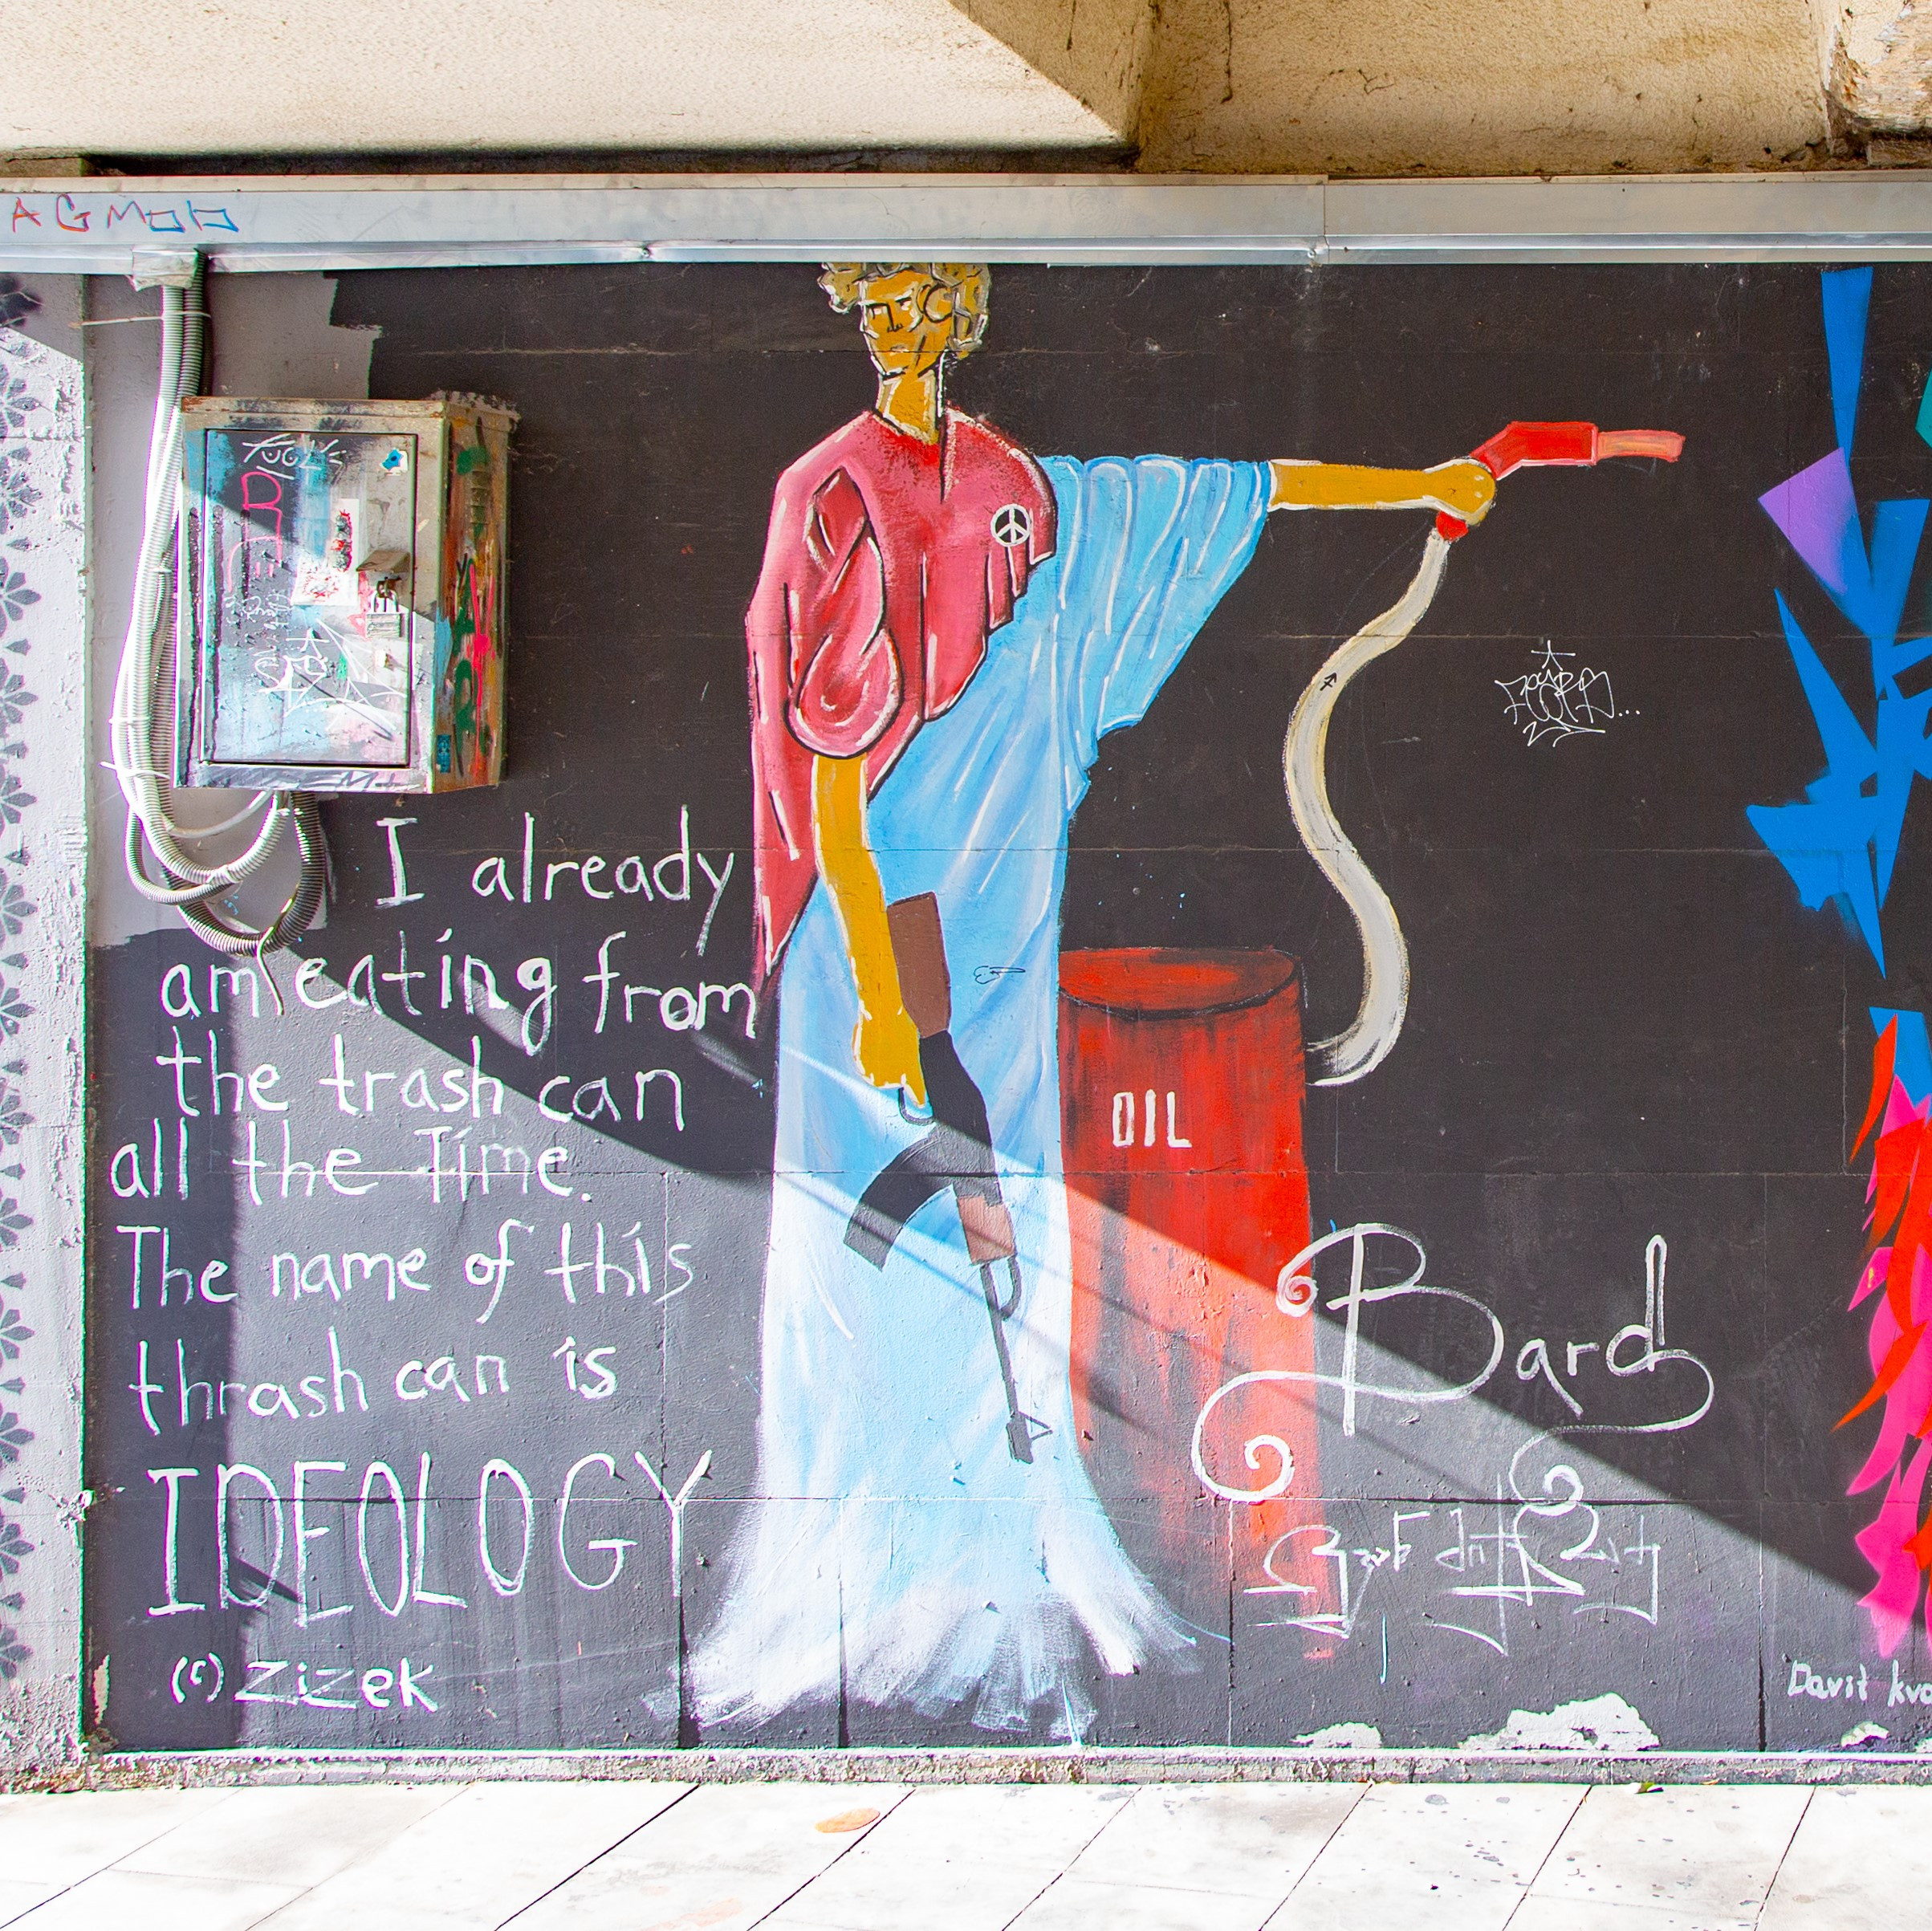 AGMob
I already
am eating from
the trash can
all the Time.
The name of this
thrash can is
IDEOLOGY
(c) Zizek
OIL
Bard
Davit